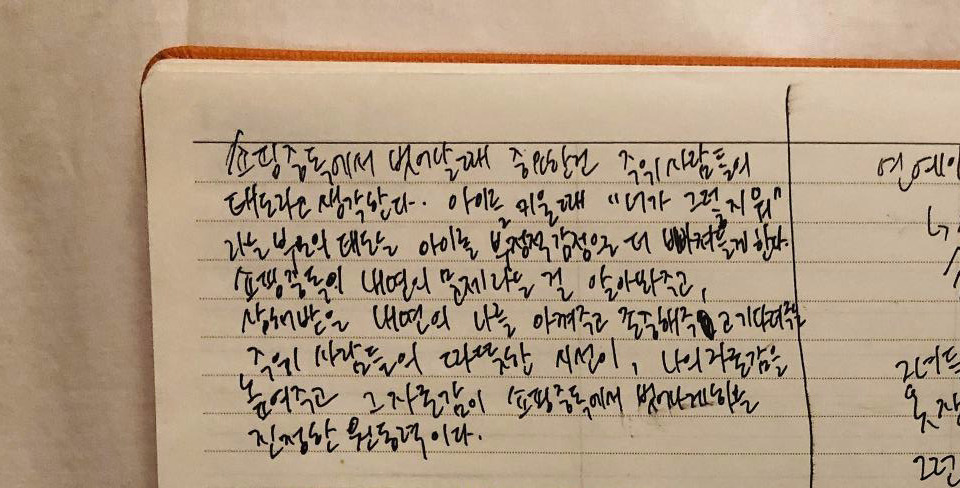 쇼핑중독에서 벗어날때 중요한건 주위사람들의
태도라고 생각한다. 아이를 키울때 "너가 그럴지 뭐"
라는 부모의 태도는 아이를 부정적감정으로 더 빠져들게 한다.
쇼핑중독의 내면의 문제라는 걸 알아봐주고,
상처받은 내면의 나를 아껴주고 존중해주고 기다려주는
주위 사람들의 따뜻한 시선이, 나의 자존감을
높여주고 그 자존감이 쇼핑중독에서 벗어나게하는
진정한 원동력이다.
연예인
옷장